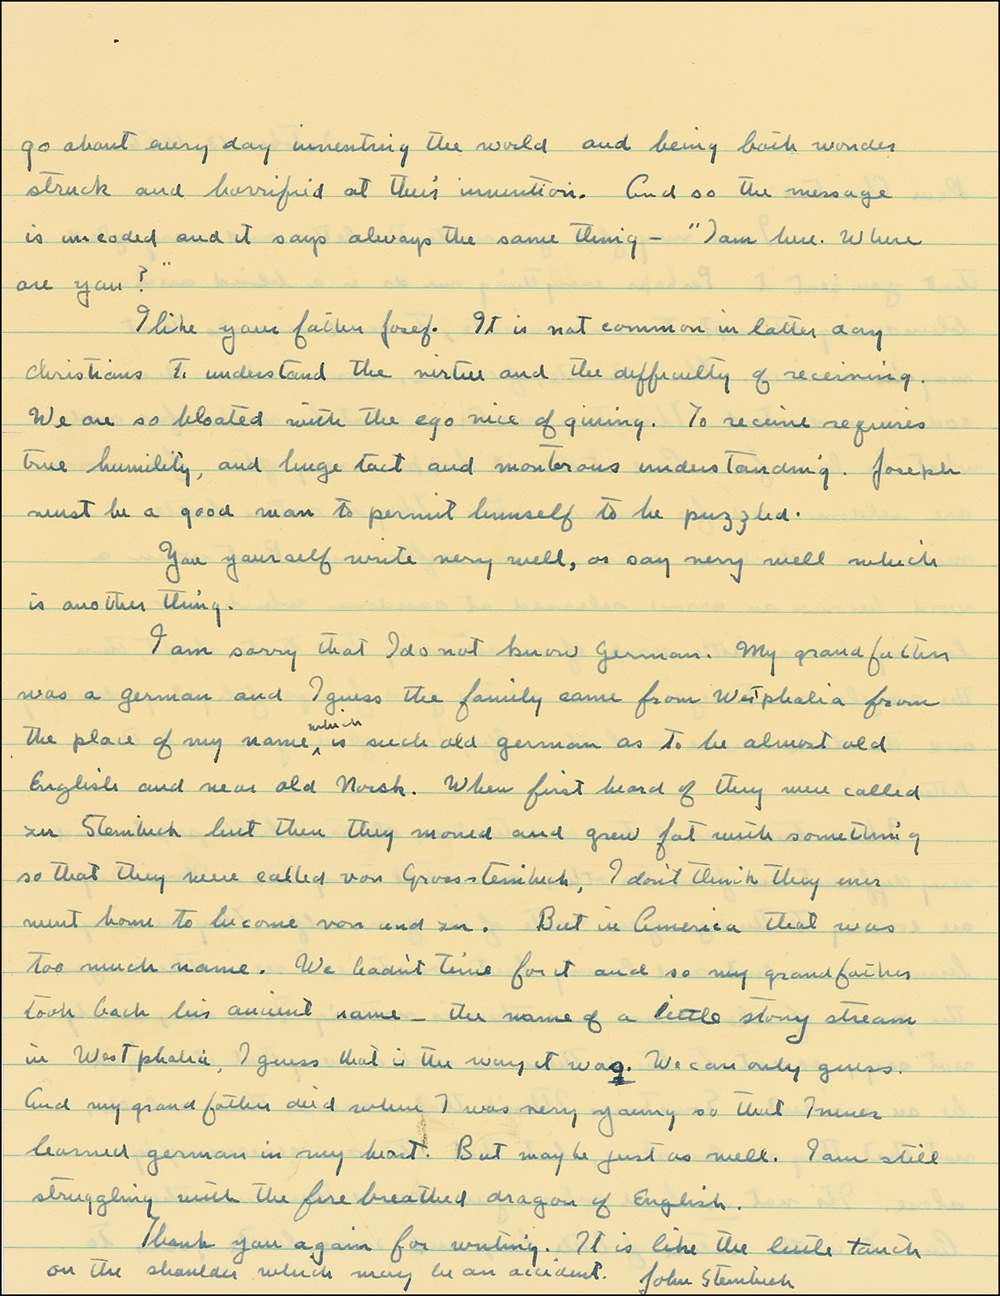 go about every day inventing the world and being both wonder
struck and horrified at their invention. And so the message
is uncoded and it says always the same thing – "I am here. Where
are you?"
I like your father Josef. It is not common in latter day
Christians to understand the virtue and the difficulty of receiving.
We are so bloated with the ego nice of giving. To receive requires
true humility, and huge tact and monterous understanding. Joseph
must be a good man to permit himself to be puzzled.
You yourself write very well, or say very well which
is another thing.
I am sorry that I do not know German. My grandfather
was a german and I guess the family came from Westphalia from
the place of my name, which is such old german as to be almost old
English and near old Norsk. When first heard of they were called
zu Steinbeck but then they moved and grew fat with something
so that they were called von Grossteinbeck, I don't think they ever
went home to become von und zu. But in America that was
too much name. We hadn't time for it and so my grandfather
took back his ancient name – the name of a little stony stream
in Westphalia, I guess that is the way it was. We can only guess.
And my grandfather died when I was very young so that I never
learned german in my heart. But maybe just as well. I am still
struggling with the fire breathed dragon of English.
Thank you again for writing. It is like the little touch
on the shoulder which may be an accident. John Steinbeck